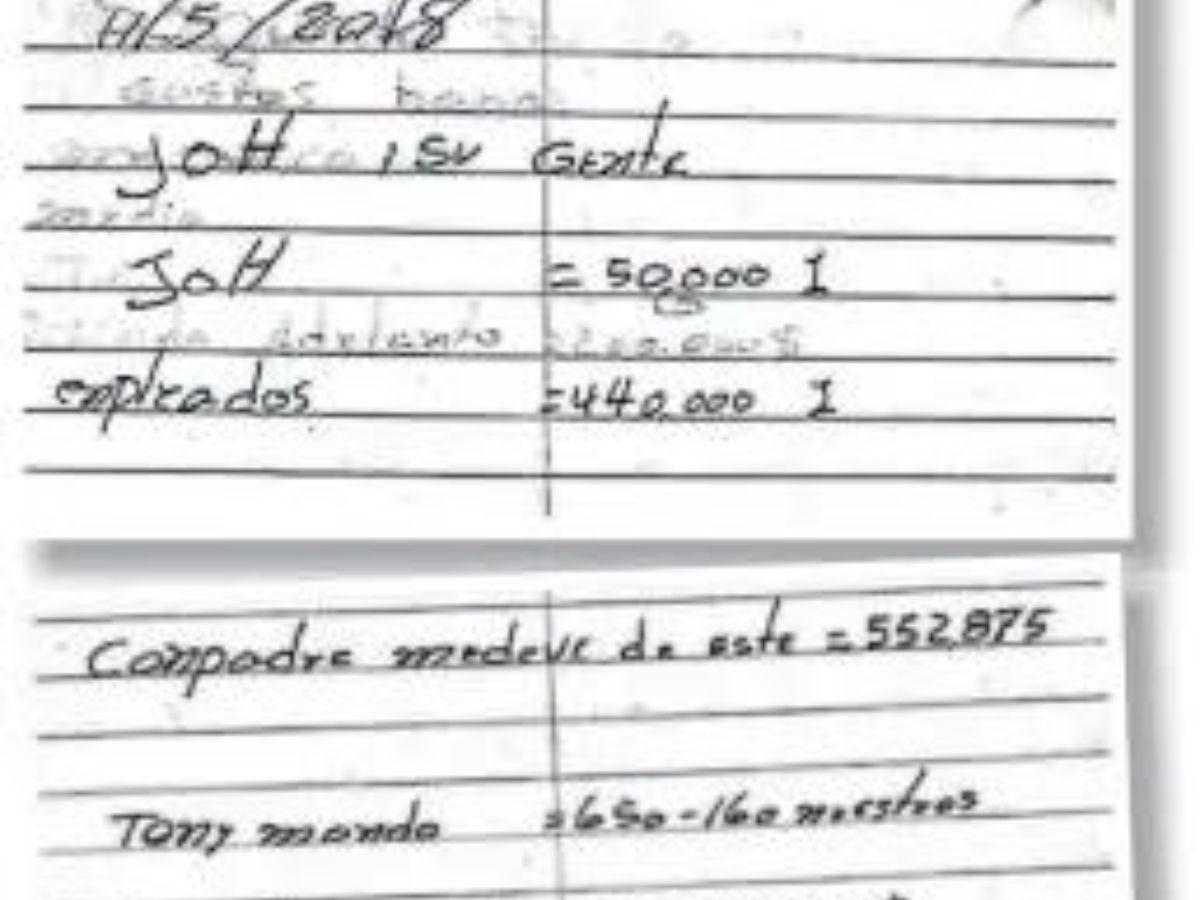 11/5/2018
Gastos
JOH , su Gente
JOH = 50,000 I
adelanto
empleados = 440,000 I
Compadre medeve de este = 552,875
Tony mando = 650 - 160 nuestros